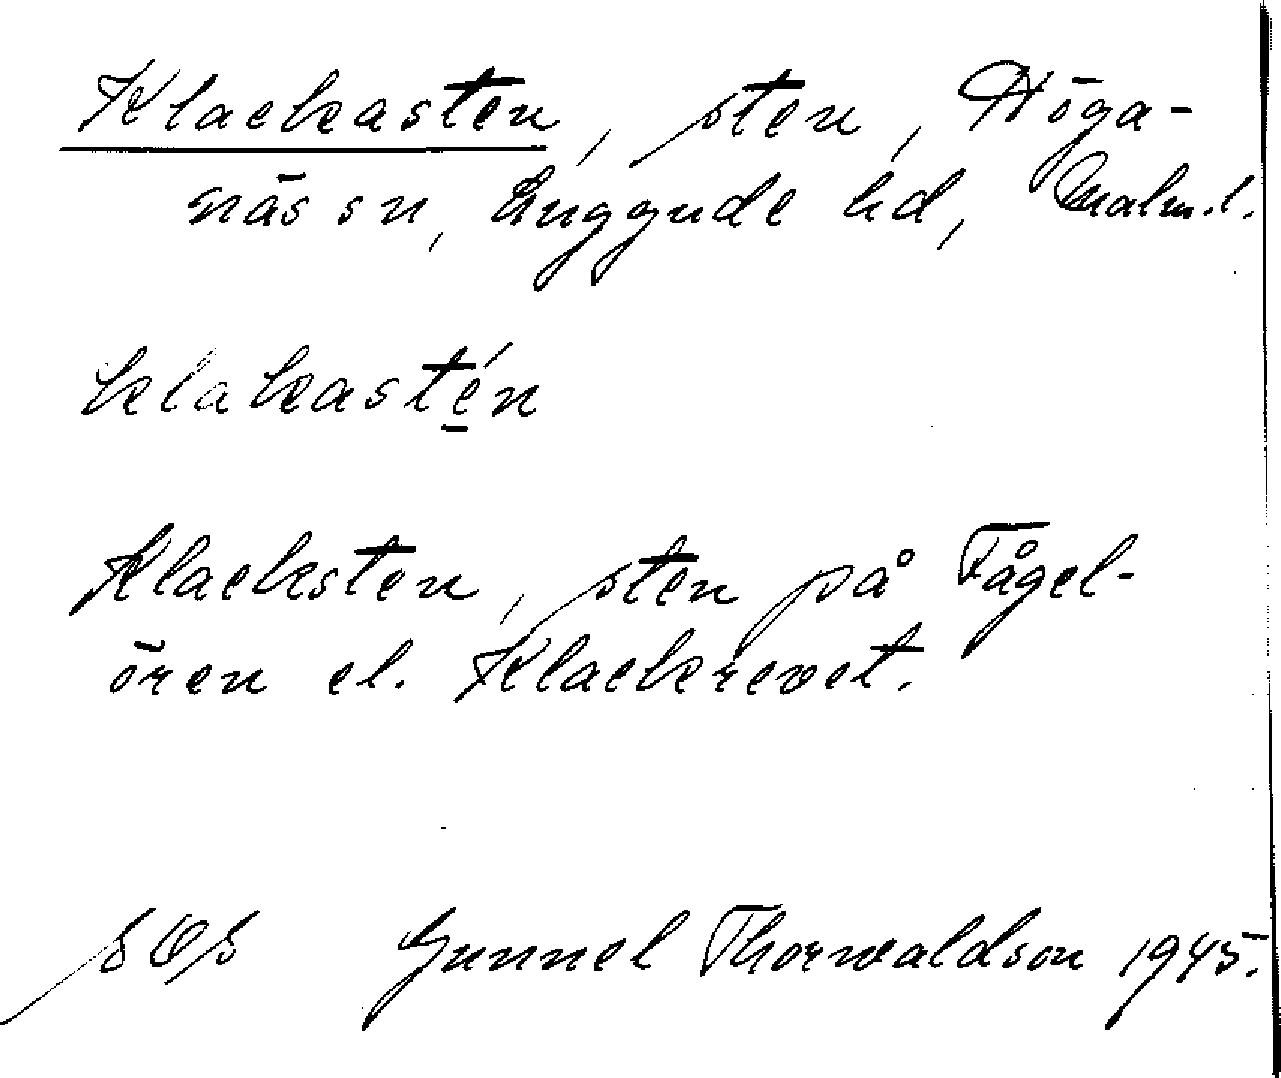 Klackasten, sten, Höga-
näs sn, Luggude hd, Malm.l.
klakasté̱n
Klacksten, sten på Fågel-
ören el. Klackrevet.
SOS Gunnel Thorwaldson 1945.